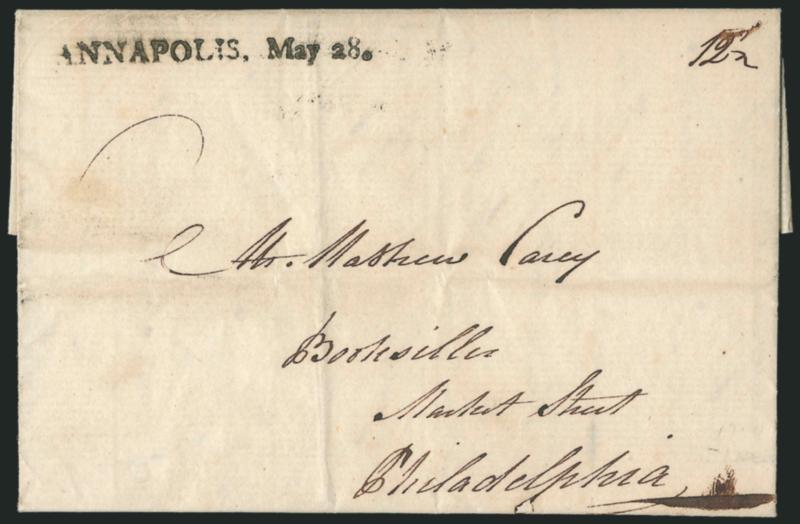 ANNAPOLIS, May 28.
12½
Mr. Mathew Carey
Bookseller
Market Street
Philadelphia